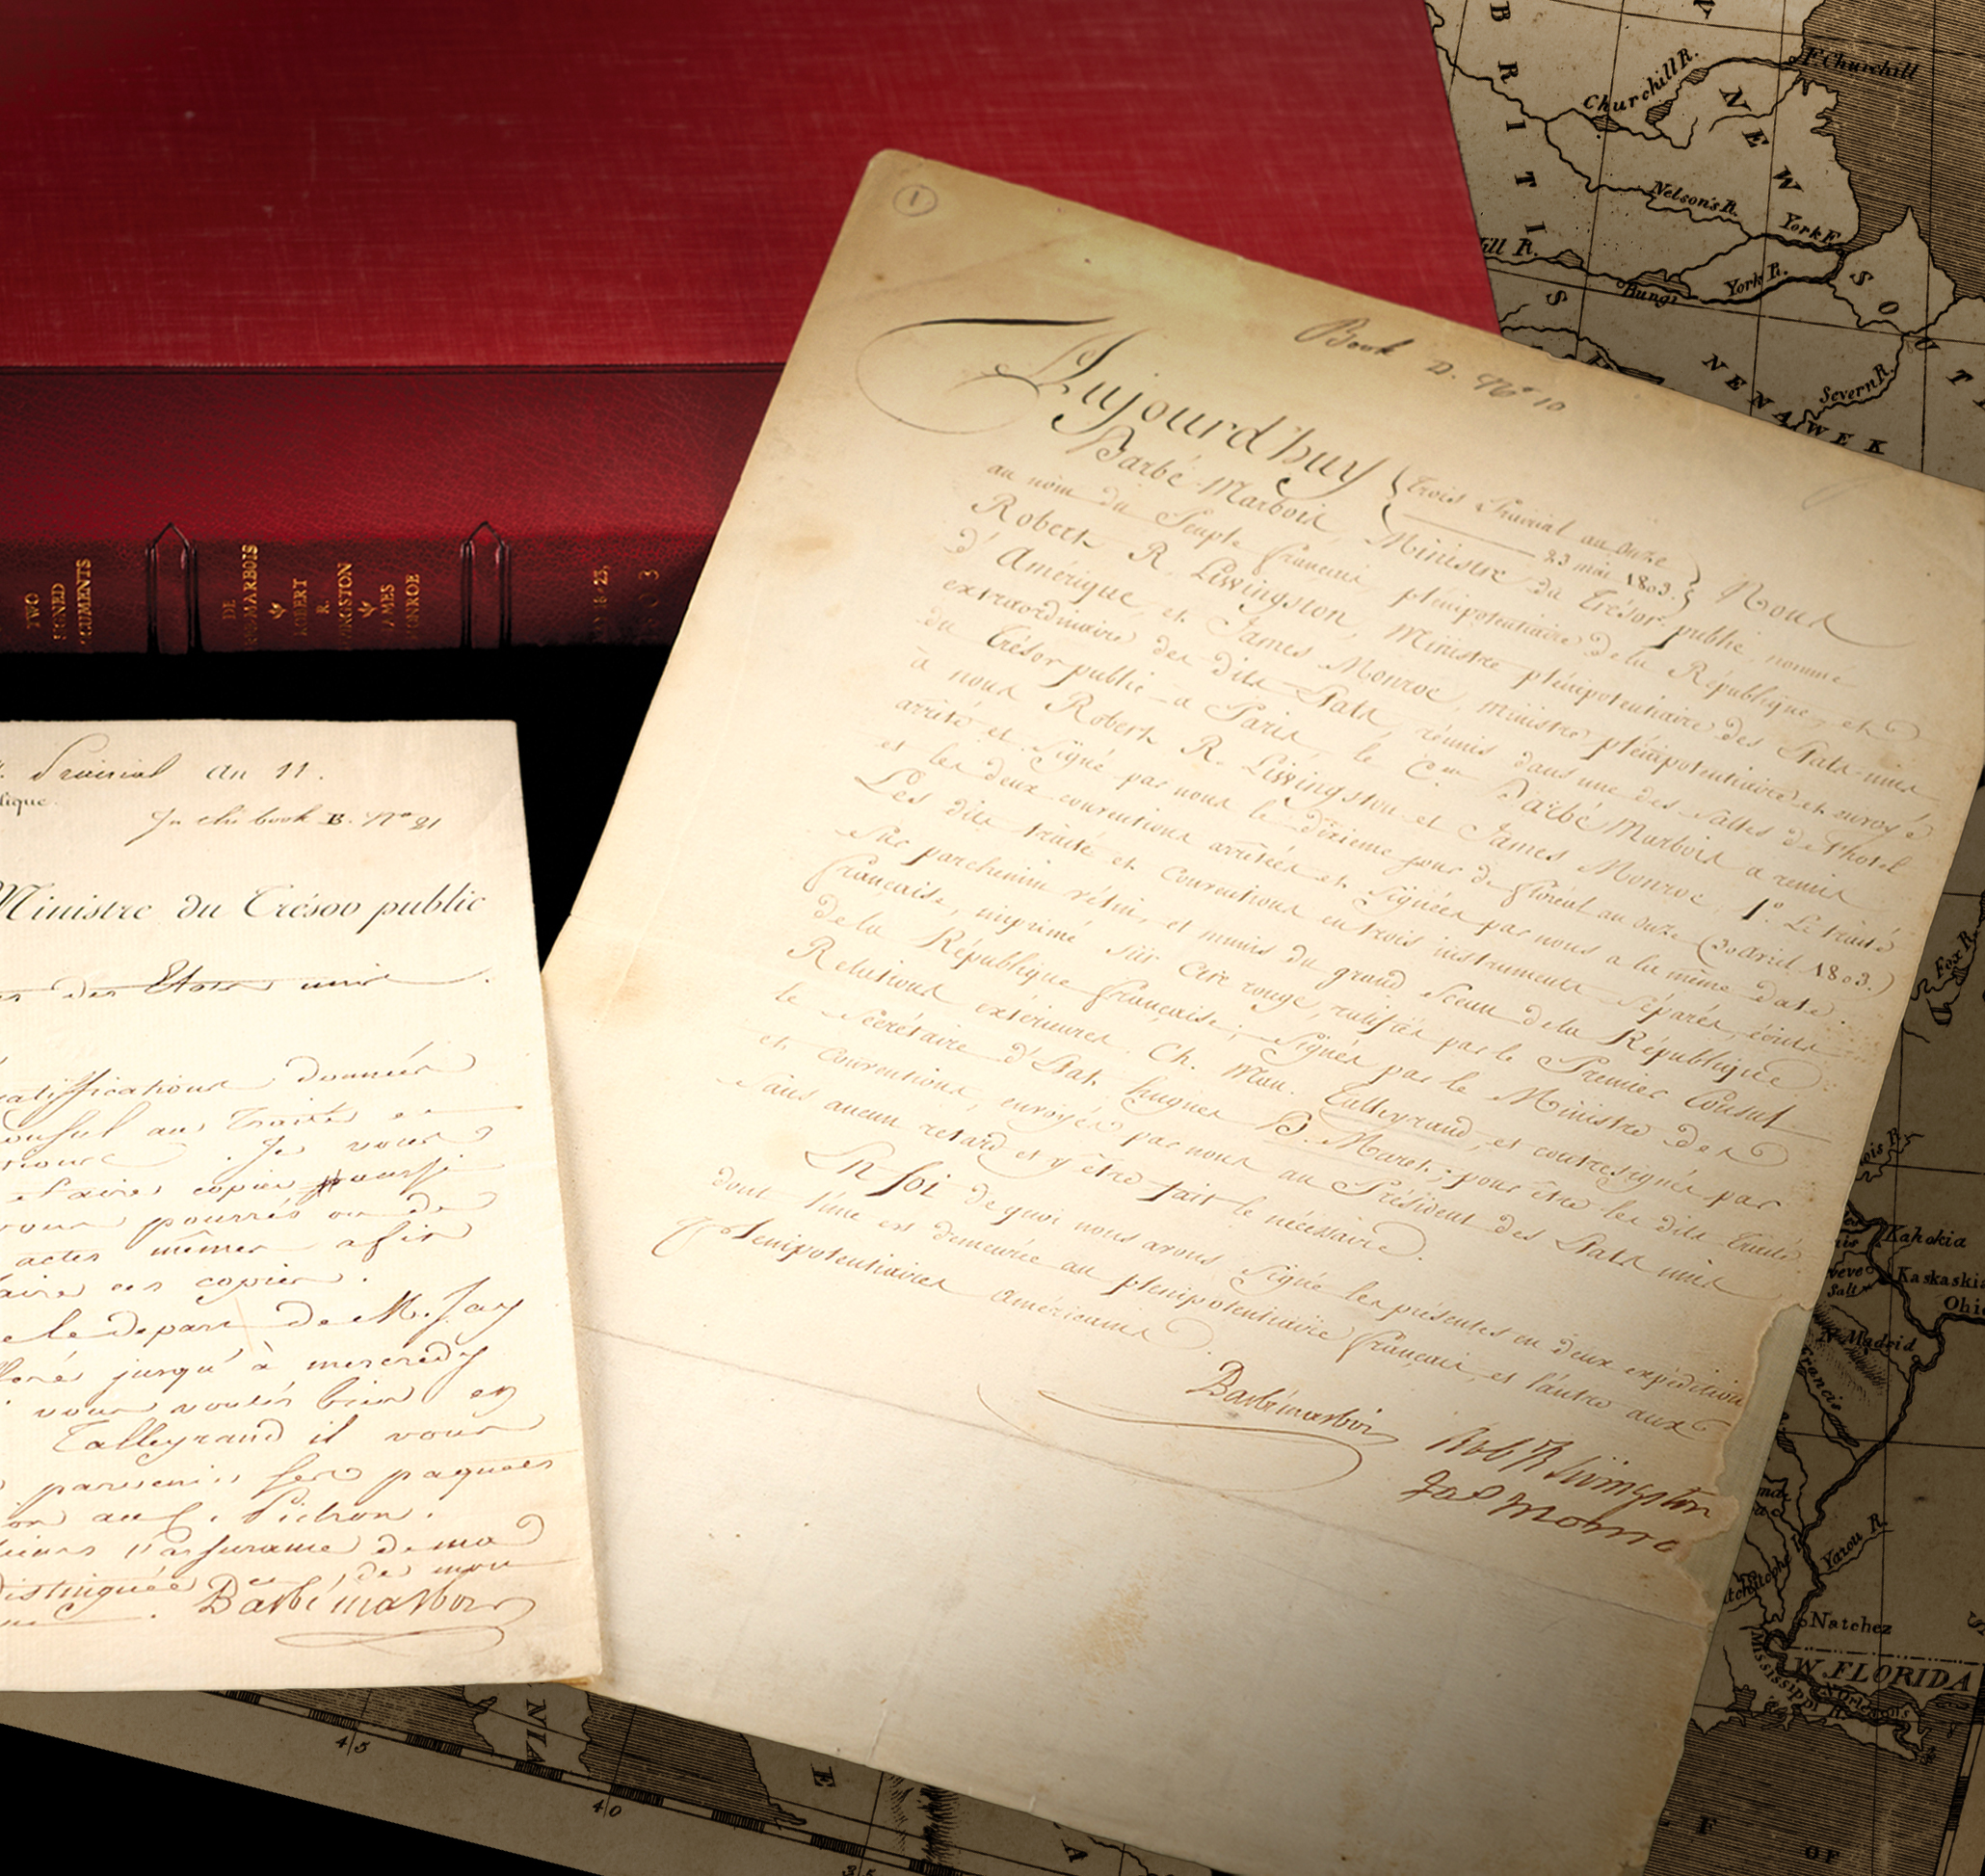 TWO
DE
LOBERT
R.
1803
Prairial an 11.
In the book B. N° 21
Ministre du Trésor public
des Etats unis
ratiffications donnés
au Traité et
. Je vous
faire copier aussi
vous pourrés ou de
actes mêmes afin
faire ces copies.
le depart de M. Jay
jusqu' à mercredy
vous voulés bien en
Talleyrand il vous
parvenir ses paquets
au C. Pichon.
l'assurance de ma
distinguée
Barbémarbois
1
Book D. N° 10
Aujourd'huy { trois Prairial an Onze
23 mai 1803. } Nous
Barbé-Marbois, Ministre du Trésor public, nommé
au nom du Peuple français, plénipotentiaire de la République, et
Robert R. Livingston, Ministre plénipotentiaire des Etats-unis
d'Amérique, et James Monroe, ministre plénipotentiaire et envoyé
extraordinaire des dits Etats réunis dans une des Salles de l'hotel
du Trésor public à Paris, le Cen Barbé Marbois a remis
à nous Robert R. Livingston et James Monroe, 1°. Le traité
arrêté et Signé par nous le dixieme jour de floréal an onze (30 avril 1803.)
et les deux conventions arrêtées et Signées par nous a la même date.
Les dits traité et Conventions en trois instruments Séparés, écrits
Sur parchemin vélin, et munis du grand Sceau de la République
française, imprimé Sur Cire rouge, ratifiés par le Premier Consul
de la République française; Signés par le Ministre des
Relations extérieures, Ch. Mau. Talleyrand, et contresignés par
le Secrétaire d'Etat, hugues B. Maret; pour être les dits traité
et Conventions, envoyés par nous au Président des Etats unis
Sans aucun retard et y être fait le nécessaire.
En foi de quoi nous avons Signé les présentes en deux expéditions
dont l'une est demeurée au plénipotentiaire français, et l'autre aux
Plenipotentiaires américains.
Barbémarbois
Rob R Livingston
Jas Monroe
Churchill R.
F. Churchill
NEW
BRITIS
Nelson's R.
York F.
York R.
Bungi
SOUT
NENAWEK
Severn R.
Fox R.
Kahokia
Kaskaski
Salt
Ohio
N. Madrid
Francis
Yazou R.
Natchez
W. FLORIDA
Mississippi R.
N. Orleans
45
40
35
NIA
E
A
F
OF